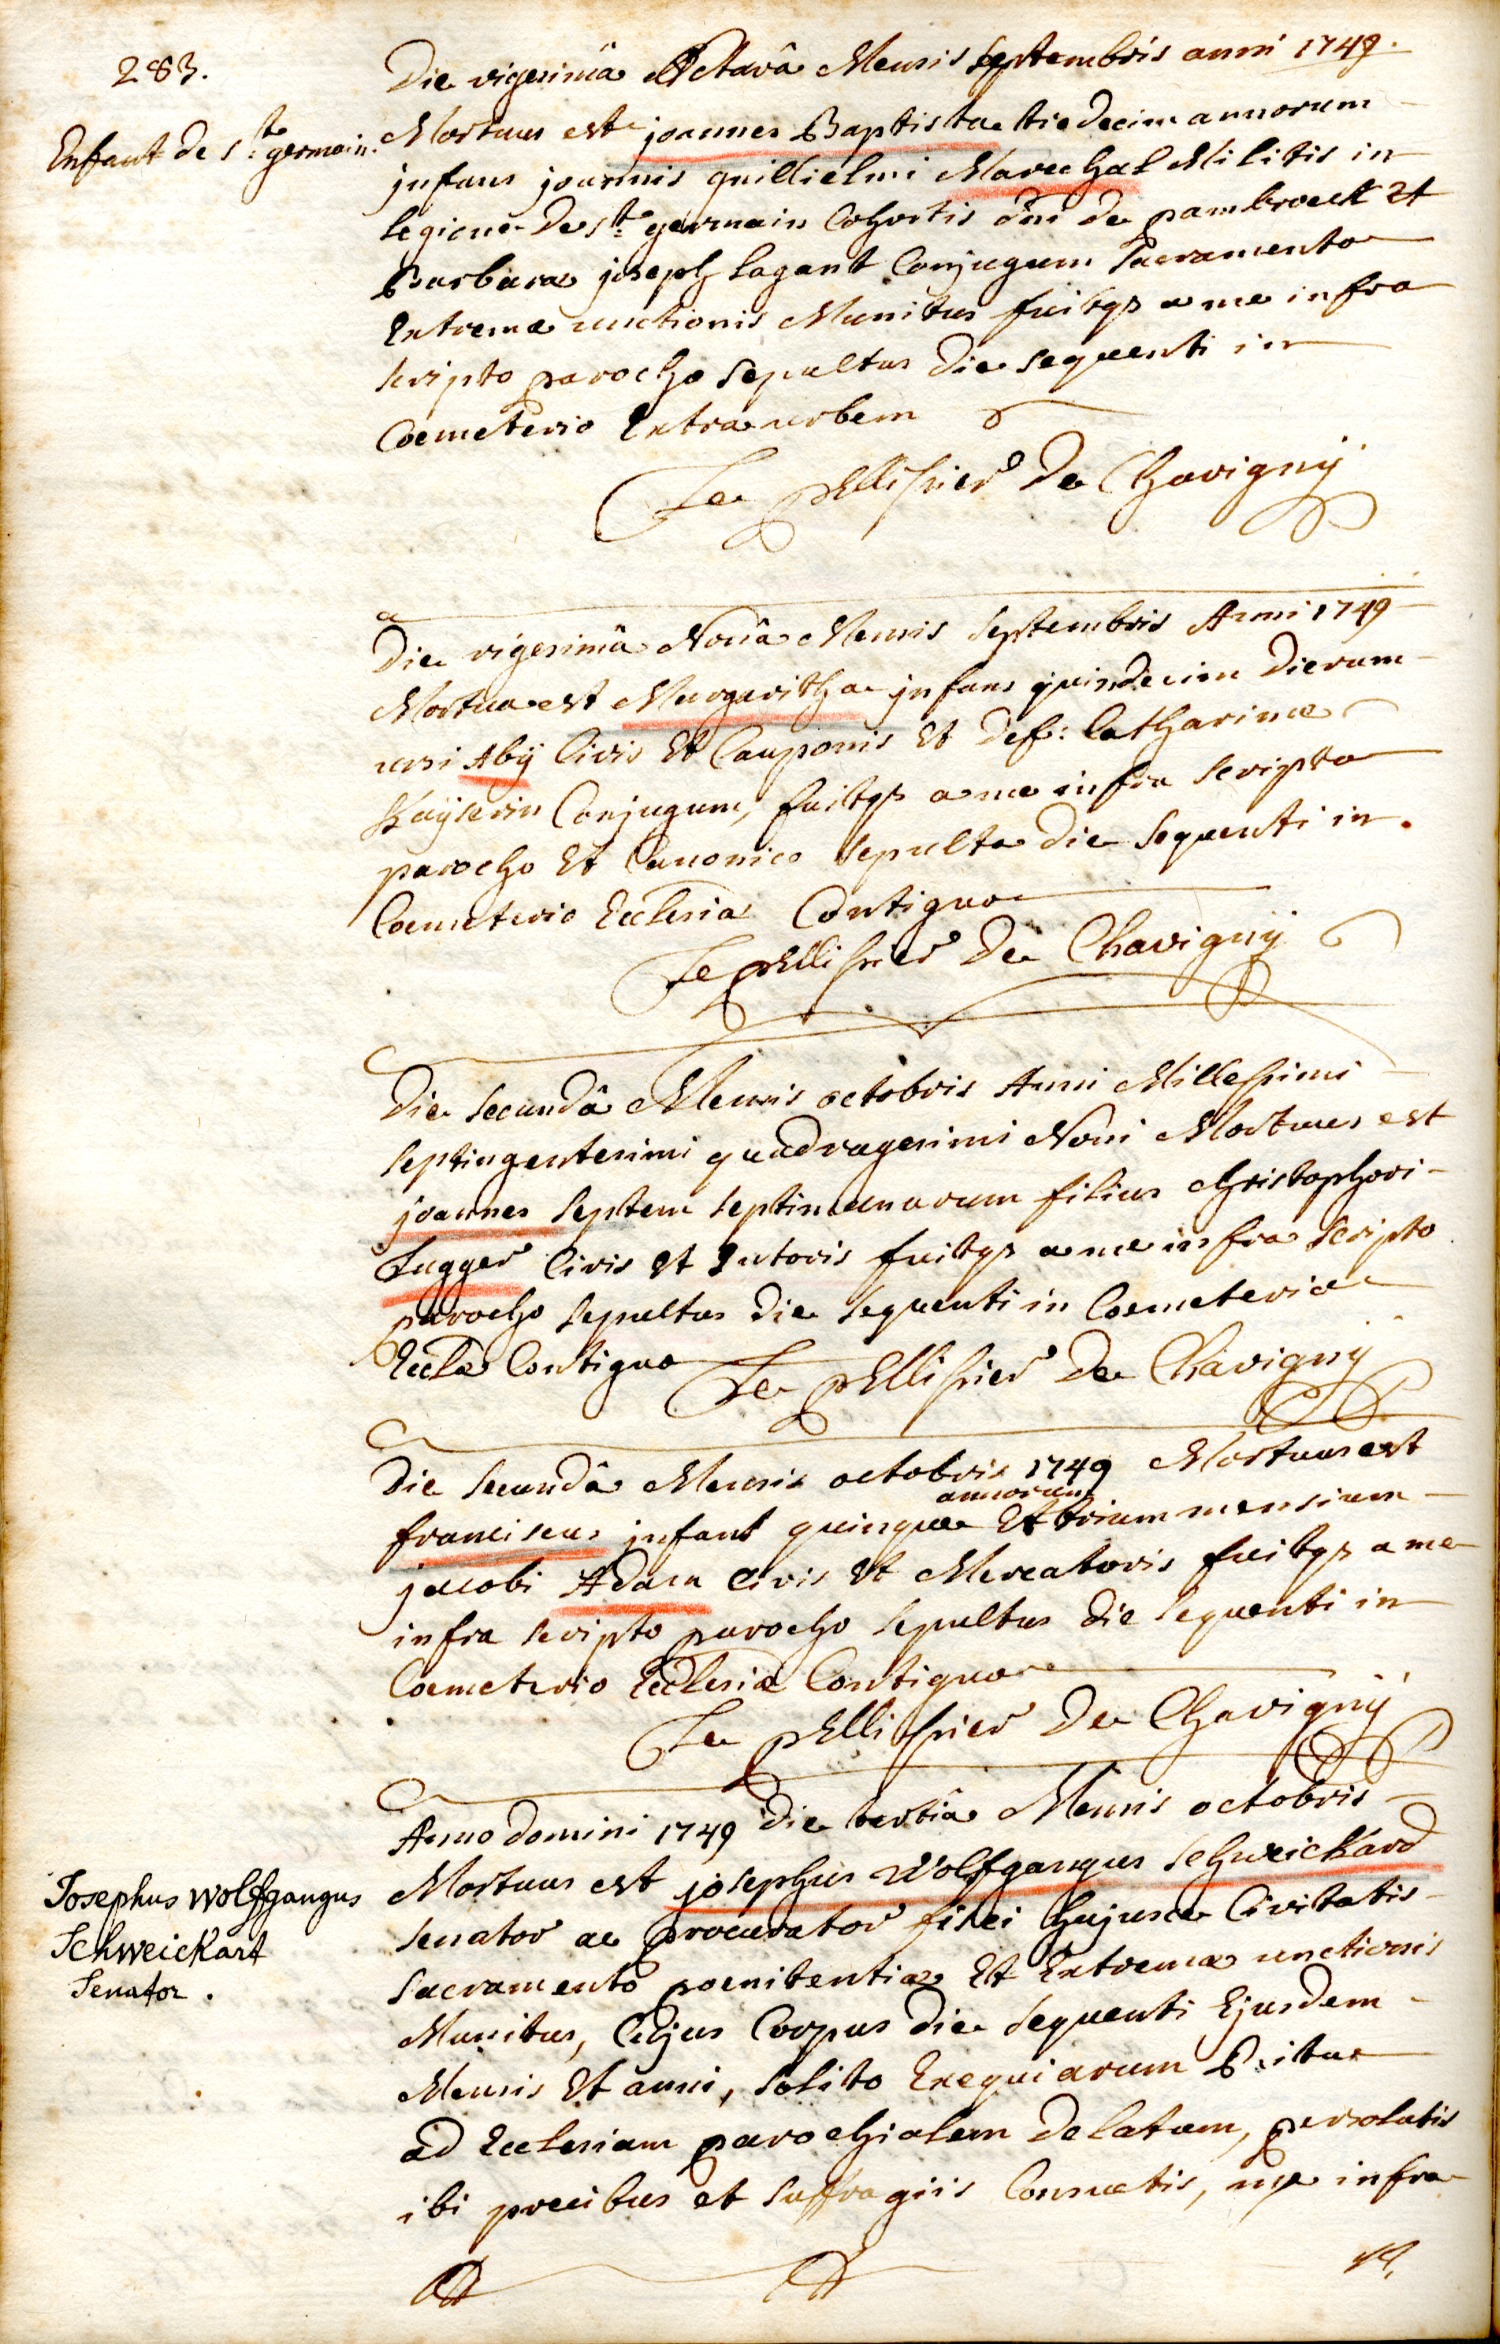 283.
Die vigesimâ Octavâ Mensis Septembris anni 1749.
Enfant de S.te germain.
Mortuus est joannes Baptista tredecim annorum
infans joannis guillielmi Marechal Militis in
legione de S.te germain Cohortis dni de pambroeck et
Barbara joseph lagant Conjugum Sacramento
Extremæ unctionis Munitus fuitqz a me infra
scripto parocho Sepultus die sequenti in
Coemeterio Extra urbem
Le pellissier De Chavignÿ
Die vigesimâ Nonâ Mensis Septembris Anni 1749
Mortua est Margaritha infans quindecim Dierum
ursi Abÿ Civis Et Cauponis Et def: Catharinæ
Kaÿserin Conjugum, fuitqz a me infra scripto
parocho Et Canonico Sepulta die sequenti in
Coemeterio Ecclesiæ Contiguo
Le pellissier De Chavignÿ
Die Secundâ Mensis octobris Anni Millessimi
septingentesimi quadragesimi Noni Mortuus est
joannes septem septimanarum filius christophori
Lugger Civis et Sutoris fuitqz a me infra scripto
parocho Sepultus die sequenti in Coemeterio
Eccla Contiguo Le pellissier De Chavignÿ
Die Secundâ Mensis octobris 1749 Mortuus est
annorum
franciscus infans quinque Et trium mensium
jacobi Adam Civis Et Mercatoris fuitqz a me
infra scripto parocho Sepultus die sequenti in
Coemeterio Ecclesiæ Contiguo
Le pellissier De Chavignÿ
Anno domini 1749 die tertiâ Mensis octobris
Josephus Wolfgangus
Schweickart
Senator.
Mortuus est josephus Wolfgangus Schweickard
Senator ac procurator fisci hujusce Civitatis
Sacramento poenitentiæ Et Extremæ unctionis
Munitus, Cujus Corpus die sequenti Ejusdem
Mensis Et anni, solito Exequiarum Ritu
ad Ecclesiam parochialem delatum, persolutis
ibi precibus et suffragiis Consuetis, me infra